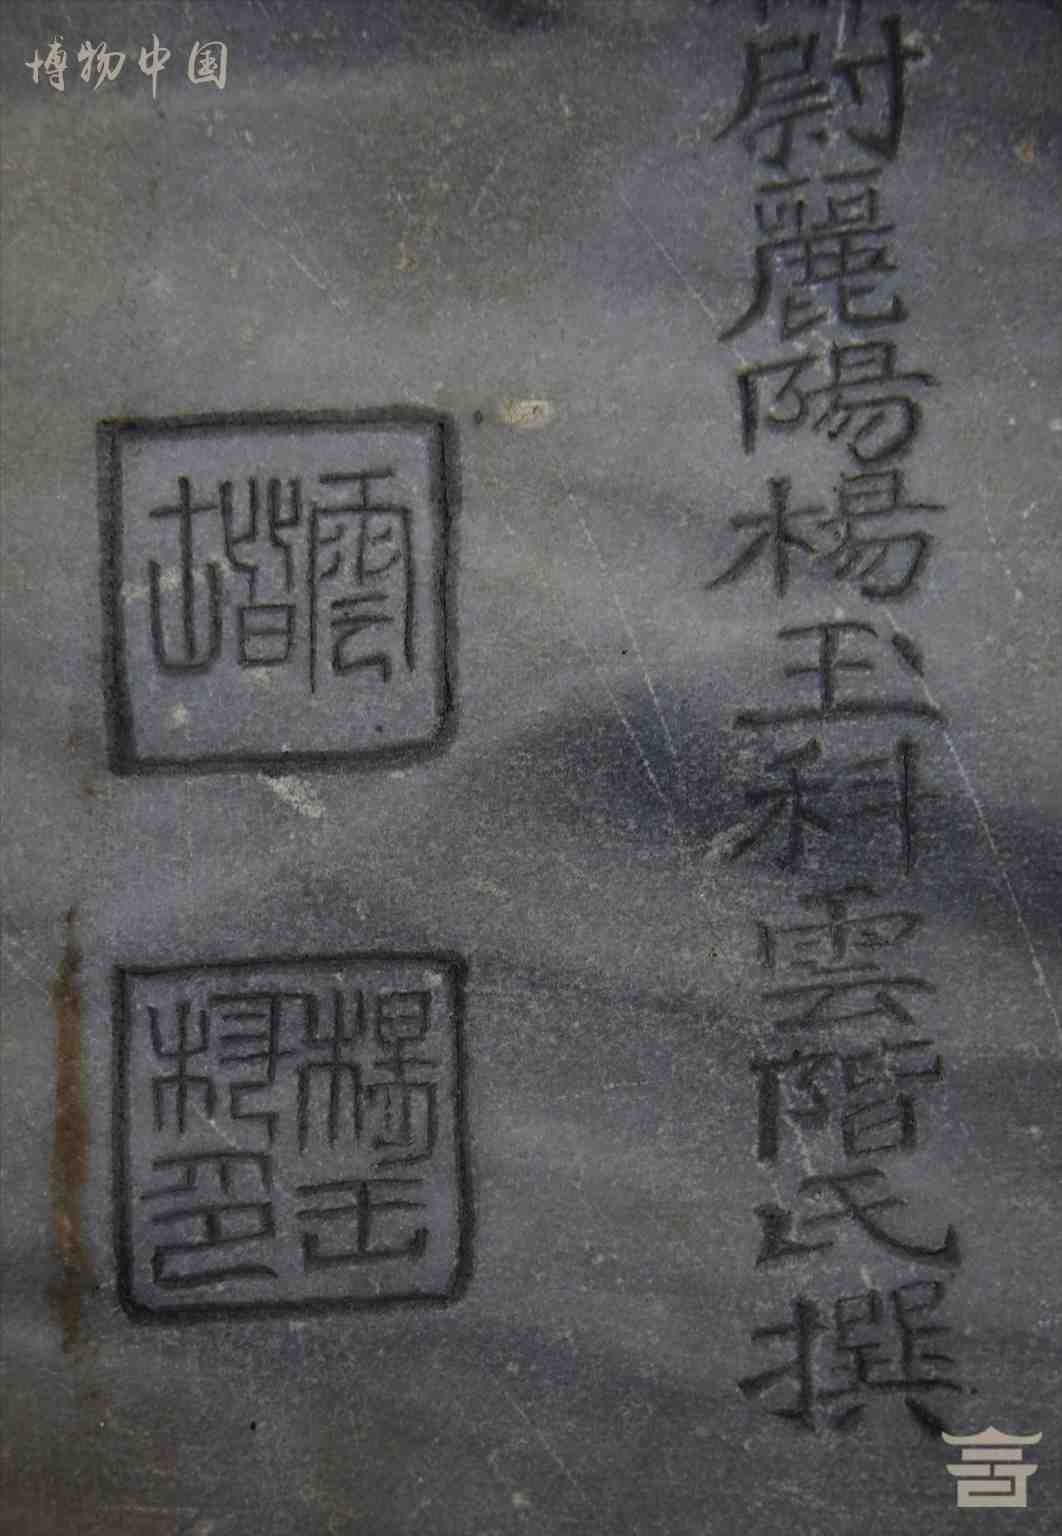 博物中国
尉麗陽楊玉科雲階氏撰
雲階
楊玉
科印